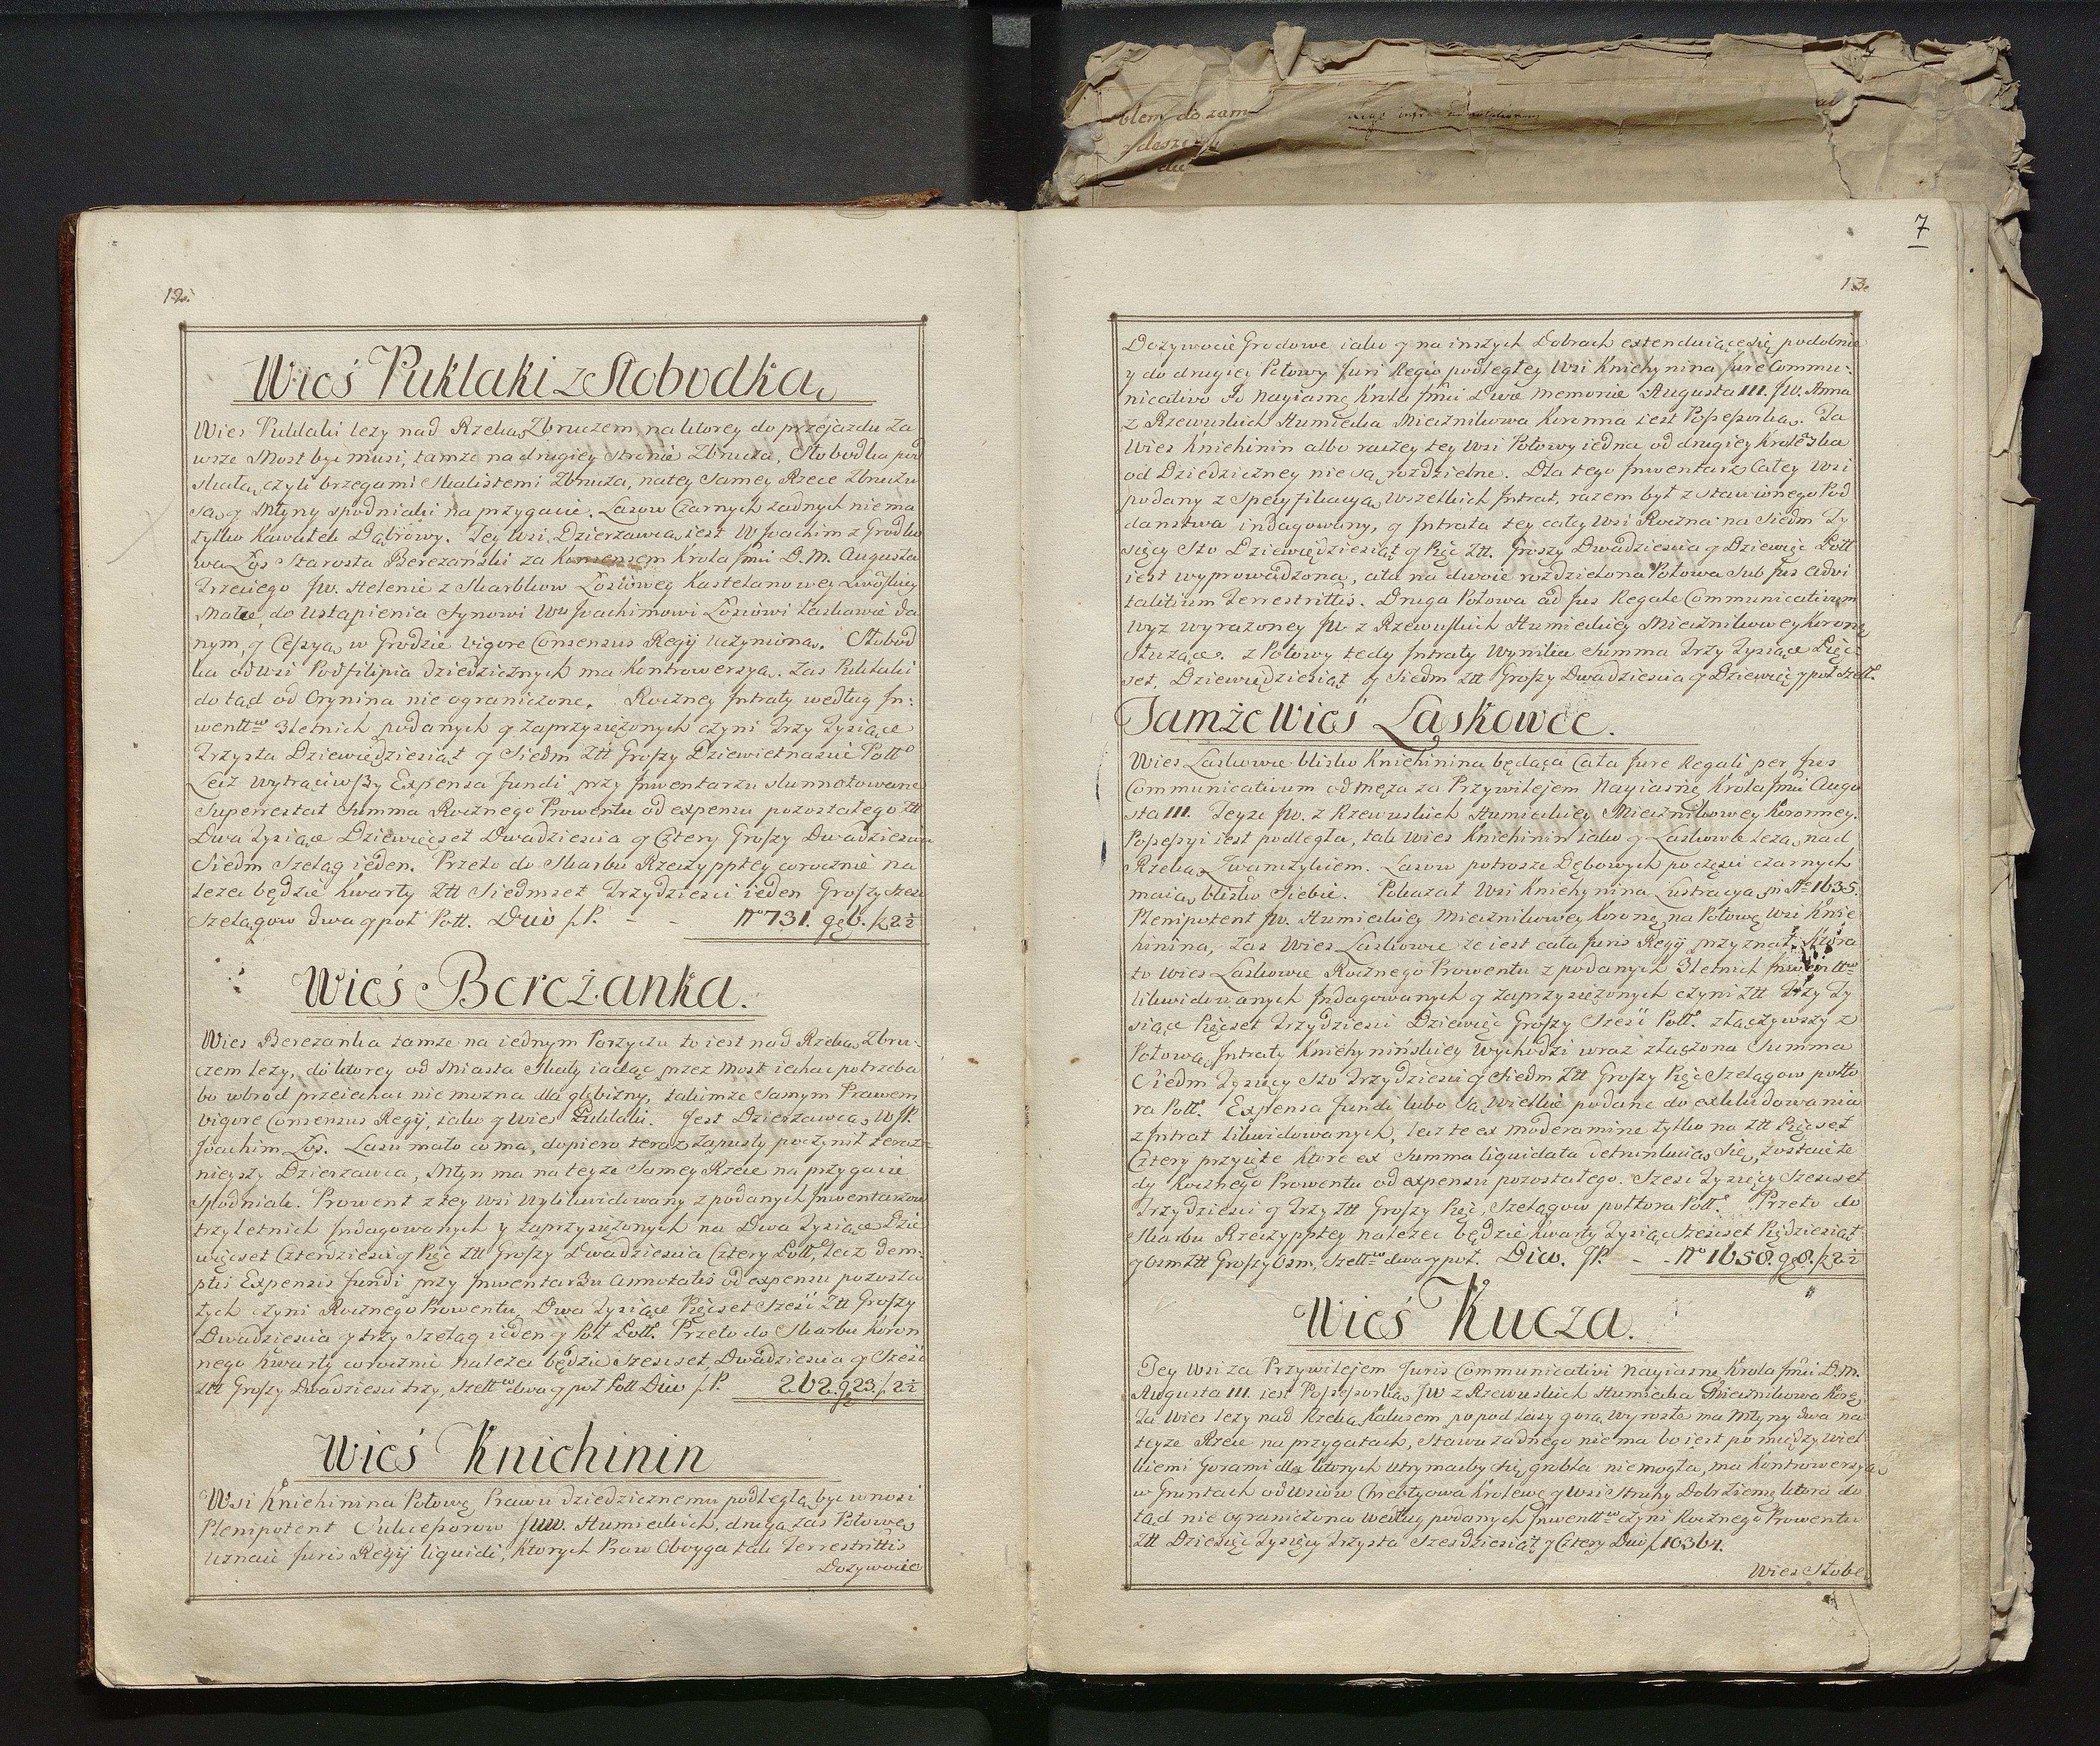 12.
Wieś Puklaki z Słobodką
Wies Puklaki lezy nad Rzeką Zbruczem, na ktorey do przejazdu za
wsze Most byc musi, tamze na drugiey stronie Zbrucza, Słobodka pod
skałą, czyli brzegami skalistemi Zbrucza, na tey samey Rzece Zbruczu
są y Młyny spodniaki na przygacie. Lasow Czarnych zadnych niema
tylko kawałek Dąbrowy. Tey Wsi Dzierzawcą iest W Joachim z Grodko
wa Łoś Starosta Berezański za Konsensem Krola Jmci D. M. Augusta
Trzeciego JW. Helenie z Skarbkow Łosiowey Kasztelanowey Lwowskiey
Matce, do ustąpienia Synowi Wu Joachimowi Łosiowi łaskawie da
nym, y Cessyą w Grodzie vigore Consensus Regij uczynioną. Słobod
ka od Wsi Podfilipia dziedzicznych ma kontrowersyą. Zas Puklaki
do tąd od Orynina nie ograniczone. Roczney Intraty według In:
wentt:w 3letnich podanych y zaprzysiężonych czyni Trzy Tysiące
Trzysta Dziewięćdziesiąt y Siedm Złł Groszy Dziewietnascie Poll.
Lecz wytrąciwszy Expensa fundi przy Inwentarzu
Superestat Summa Rocznego Prowentu od expensu pozostałego Złł
Dwa Tysiące Dziewięćset Dwadziescia y Cztery Groszy Dwadziescia
Siedm Szeląg ieden. Przeto do Skarbu Rzeczyppltey corocznie na
lezec będzie Kwarty Złł Siedmset Trzydziesci ieden Groszy szesc
Szelągow dwa y poł Poll. Duio f. P. - - No 731. gr 6. / 2 ½
Wieś Bereżanka.
Wies Berezanka tamze na iednym Porzyczu to iest nad Rzeką Zbru-
czem lezy, do ktorey od Miasta Skały iadąc przez Most iechac potrzeba
bo wbrod przeiechac nie mozna dla głębizny, takimze samym Prawem
vigore Consensus Regij, iako y Wies Puklaki. Jest Dzierzawcą W JP.
Joachim Łoś. Lasu mało co ma, dopiero teraz zapusty poczynił teraz-
nieyszy Dzierzawca, Młyn ma na teyze samey Rzece na przygacie
spodniak. Prowent z tey Wsi wylikwidowany z podanych Inwentarzow
trzyletnich Indagowanych y zaprzysiężonych na Dwa Tysiące Dzie
więcset Czterdziesci y Pięc Złł Groszy Dwadziescia Cztery Poll. Lecz dem-
ptis Expensis fundi przy Inwentarzu annotatis od expensu pozosta
łych czyni Rocznego Prowentu, Dwa Tysiące Pięcset Szesc Złł Groszy
Dwadziescia y trzy Szeląg ieden y Poł Poll. Przeto do Skarbu Koron
nego Kwarty corocznie nalezec będzie Szescset, Dwadziescia y Szesc
Złł Groszy Dwadziescia trzy, szell:w dwa y poł Poll Duio f. P. 262. g 23. / 2 ½
Wieś Kniehinin
Wsi Kniehinina Połowę Prawu dziedzicznemu podległą byc wnosi
Plenipotent Sukcessorow JWW. Humieckich, drugą zas Połowę
uznaie Juris Regij liquidi, ktorych Praw oboyga tak Terrestritis
Dozywocie
7
13.
Dozywocie Grodowe iako y na inszych Dobrach extenduiące się podobnie
y do drugiey Połowy Juri Regio podległey Wsi Kniehynina Jure Commu-
nicativo Po Nayiasnę Krolu Jmci Divæ Memoriæ Augusta III. JW. Anna
z Rzewuskich Humiecka Miecznikowa Koronna iest Possessorką. Ta
Wies Kniehinin albo raczey tey Wsi Połowy iedna od drugiey Krolewska
od Dziedziczney nie są rozdzielne. Dla tego Inwentarz Całey Wsi
podany z specyfikacyą wszelkich Intrat, razem był z stawionego Pod
danstwa indagowany, y Intrata tey całey Wsi Roczna na Siedm Ty
sięcy Sto Dziewięćdziesiąt y Pięc Złł. Groszy Dwadziescia y Dziewięc Poll
iest wyprowadzona, ata na dwoie rozdzielona Połowa sub Jus advi
talitium Terrestritis. Druga Połowa ad Jus Regale Communicativum
wyz wyrazoney JW. z Rzewuskich Humieckiey Miecznikowey Koronę
słuzące. z Połowy tedy Intraty wynika summa Trzy Tysiące Pięc
set, Dziewięćdziesiąt y Siedm Złł Groszy Dwadziescia y Dziewięć y poł szell.
Tamże Wieś Laskowce.
Wies Laskowce blisko Kniehinina będąca Cała Jure Regali per Jus
Communicativum od męza za Przywilejem Nayiasnę Krola Jmci Augu
sta III. Teyze JW. z Rzewuskich Humieckiey Miecznikowey Koronney.
Possessyi iest podległa, tak Wies Kniehinin iako y Laskowce lezą, nad
Rzeką Zwanczykiem. Lasow potrosze Dębowych po części czarnych
maią blisko siebie. Pokazał Wsi Kniehynina Lustracyą in Ao 1635.
Plenipotent JW. Humieckiey Miecznikowey Koronę na Połowę Wsi Knie
hinina, zas Wies Laskowce ze iest cała Juris Regij przyznał, Która
to Wies Laskowce Rocznego Prowentu z podanych 3letnich Inwentt:w
likwidowanych Indagowanych y zaprzysiężonych czyni Złł Trzy Ty
siące Pięcset Trzydziesci Dziewięc Groszy Szesc Poll. złączywszy z
Połową Intraty Kniehynińskiey wychodzi wraz złączona Summa
Siedm Tysięcy Sto Trzydziesci y Siedm Złł Groszy Pięc Szelągow połto
ra Poll. Expensa fundi lubo są wielkie podane do exkludowania
z Intrat likwidowanych, lecz te ex moderamine tylko na Złł Pięcset
Cztery przyięte które ex Summa liquidata detrunkuią się, zostaie te
dy Rocznego Prowentu od expensu pozostałego. Szesc Tysięcy Szescset
Trzydziesci y Trzy Złł Groszy Pięc, Szelągow połtora Poll. Przeto do
Skarbu Rzeczyppltey nalezec będzie Kwarty Tysiąc Szescset Pięćdziesiąt
y Osm Złł Groszy Osm, Szell:w dwa y poł. Diw. JP. - - No 1658. g 8. / 2 ½
Wieś Kucza.
Tey Wsi za Przywilejem Juris Communicativi Nayiasnę Krola Jmci D. M.
Augusta III. iest Possessorką JW z Rzewuskich Humiecka Miecznikowa Korę
Ta Wies lezy nad Rzeką Kalusem popod Lasy gorą wyrosłe ma Młyny dwa na
teyze Rzece na przygatach, Stawu zadnego niema bo iest pomiędzy wiel
kiemi Gorami dla ktorych utrymacby się grobla niemogła, ma kontrowersyą
w Gruntach od Wsiow Chrebtyowa Krolewę y Wsi Struhy Dobr Ziemę ktora do
tąd nie ograniczona według podanych Inwentt:w czyni Rocznego Prowentu
Złł Dziesięć Tysięcy Trzysta Szescdziesiąt y Cztery Duio f. 10364.
Wies Słobo